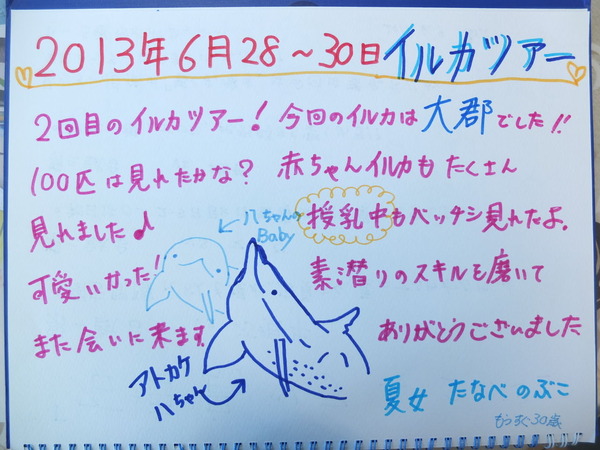 2013年6月28〜30日 イルカツアー
2回目のイルカツアー！今回のイルカは大郡でした!!
100匹は見れたかな？赤ちゃんイルカもたくさん
見れました♪
八ちゃんの
Baby
授乳中もベッチシ見れたよ。
可愛いかった！
素潜りのスキルを磨いて
また会いに来ます
ありがとうございました
アトカケ
八ちゃん
夏女 たなべのぶこ
もうすぐ30歳